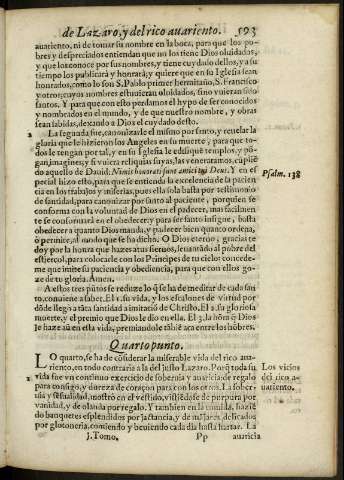 de Lazaro, y del rico auariento. 593
auariento, ni de tomar su nombre en la boca, para que los po-
bres y despreciados entiendan que no los tiene Dios olvidados,
y que los conoce por sus nombres, y tiene cuydado dellos, y a su
tiempo los publicarà y honrarà, y quiere que en su Iglesia sean
honrados, como lo son S. Pablo primer hermitaño, S. Francisco
y otros; cuyos nombres estuuieran olvidados, sino vuieran sido
santos. Y para que con esto perdamos el hypo de ser conocidos
y nombrados en el mundo, y de que nuestro nombre, y obras
sean sabidas, dexando a Dios el cuydado desto.
2 La segunda fue, canonizarle el mismo por santo, y reuelar la
gloria que le hizieron los Angeles en su muerte, para que to-
dos le tengan por tal, y en su Iglesia le edifiquẽ templos, y põ-
gan imagenes, y si vuiera reliquias suyas, las veneraramos, cũpliẽ
do aquello de Dauid. Nimis honorati sunt amici tui Deus. Y en es
pecial hizo esto, para que se entienda la excelencia de la pacien
cia en los trabajos y miserias; pues ella sola basta por testimonio
de santidad, para canonizar por santo al paciente, porquien se
conforma con la voluntad de Dios en el padecer, mas facilmen
te se conformarà en el obedecer; y para ser santo insigne, basta
obedecer a quanto Dios manda, y padecer bien quanto ordena,
ò permite, al modo que se ha dicho. O Dios eterno, gracias te
doy por la honra que hazes a tus sieruos, leuantãdo al pobre del
estiercol, para colocarle con los Principes de tu cielo: concede-
me que imite su paciencia y obediencia, para que con ellos go-
ze de tu gloria. Amen.
A estos tres pũtos se reduze lo q̃ se ha de meditar de cada san
to, conuiene a saber. El 1. su vida, y los escalones de virtud por
dõde llegò a tãta santidad a imitaciõ de Christo. El 2. su gloriosa
muerte, y el premio que Dios le dio en ella. El 3. la hõra q̃ Dios
le haze aũ en esta vida, premiandole tãbiẽ acà entre los hõbres.
Psalm. 138
Quarto punto.
LO quarto, se ha de cõsiderar la miserable vida del rico aua-
riento, en todo contraria a la del justo Lazaro. Porq̃ toda su
vida fue vn continuo exercicio de soberuia y auaricia: de regalo
para consigo, y dureza de coraçon para con los otros. La sober-
uia y sensualidad, mostrò en el vestido, vistiẽdose de purpura por
vanidad, y de olanda por regalo. Y tambien en la comida, haziẽ
do banquetes esplendidos por jactancia, y de mãjares delicados
por glotoneria, comiendo y beuiendo cada dia hasta hartar. La
Los vicios
del rico a-
uariento.
I. Tomo. Pp auaricia